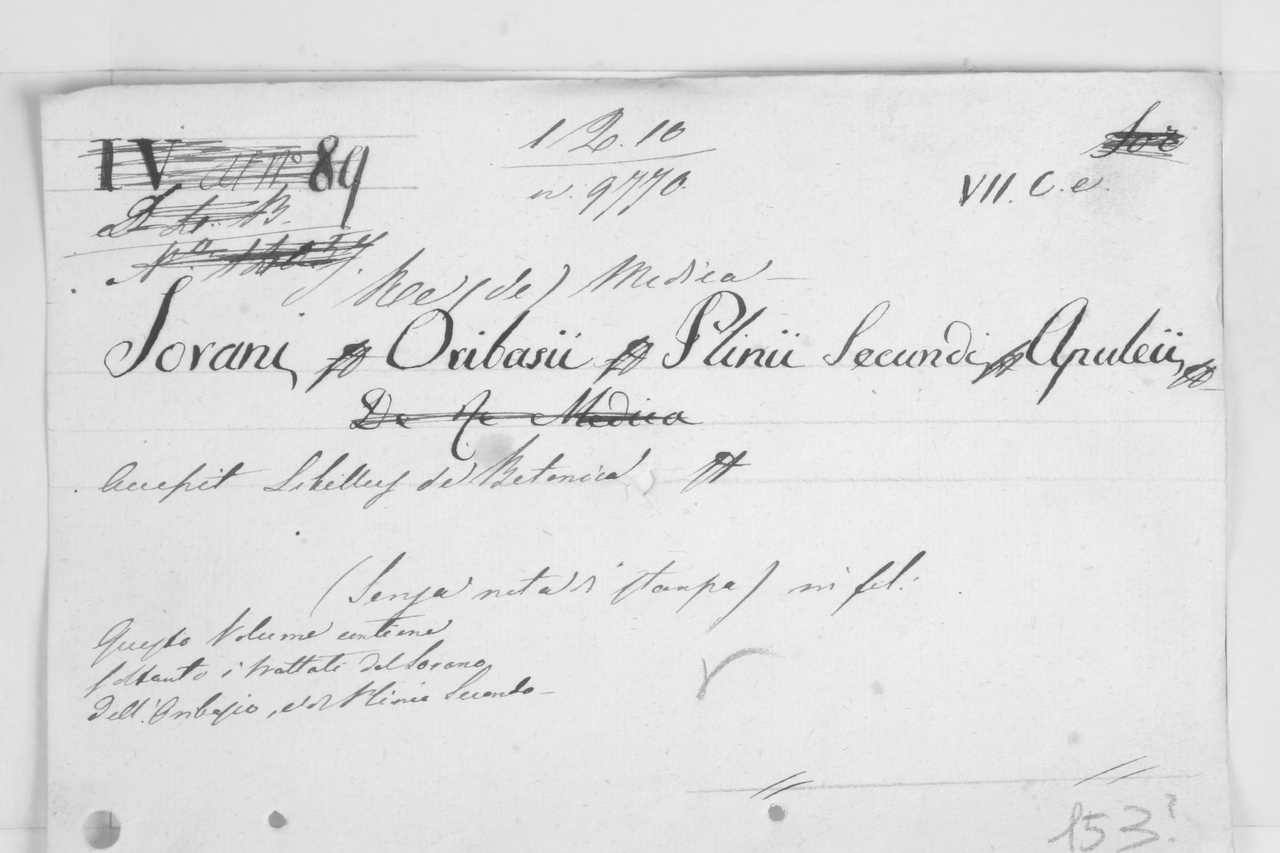 IV 89
1 20. 10
n. 9770.
VII. C. e.
Re (de) Medica —
Sorani, Oribasii Plinii Secundi Apuleii,
De Re Medica
Accepit Libellus de Betonica
(Senza nota di stampa) in fol.
Questo Volume contiene
soltanto i trattati del Sorano,
dell'Oribasio, e di Plinio Secondo —
153